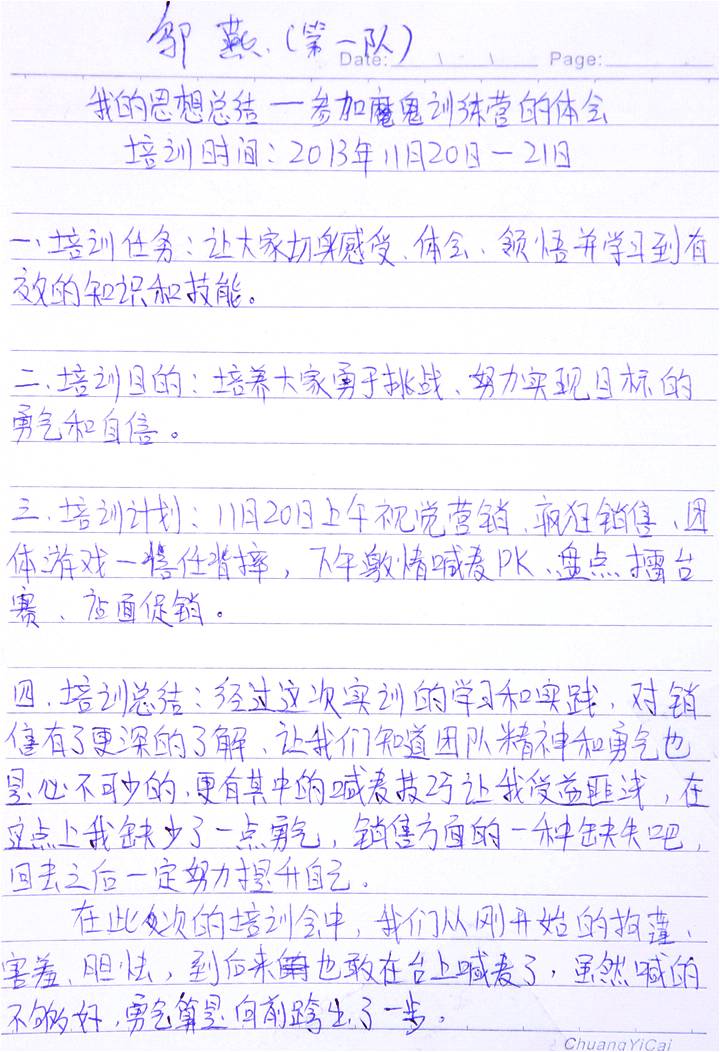 邹燕(第一队)
Date: Page:
我的思想总结一参加魔鬼训练营的体会
培训时间:2013年11月20日一21日
一、培训任务:让大家切身感受、体会、领悟并学习到有
效的知识和技能。
二、培训目的:培养大家勇于挑战、努力实现目标的
勇气和自信。
三、培训计划:11月20日上午视觉营销、疯狂销售、团
体游戏一信任背摔,下午激情喊麦PK、盘点擂台
赛、店面促销。
四、培训总结:经过这次实训的学习和实践,对销
售有了更深的了解、让我们知道团队精神和勇气也
是必不可少的,更有其中的喊麦技巧让我受益匪浅,在
这点上我缺少了一点勇气,销售方面的一种缺失吧,
回去之后一定努力提升自己。
在此次的培训会中,我们从刚开始的拘谨、
害羞、胆怯,到后来也敢在台上喊麦了,虽然喊的
不够好,勇气算是向前跨出了一步。
ChuangYiCai